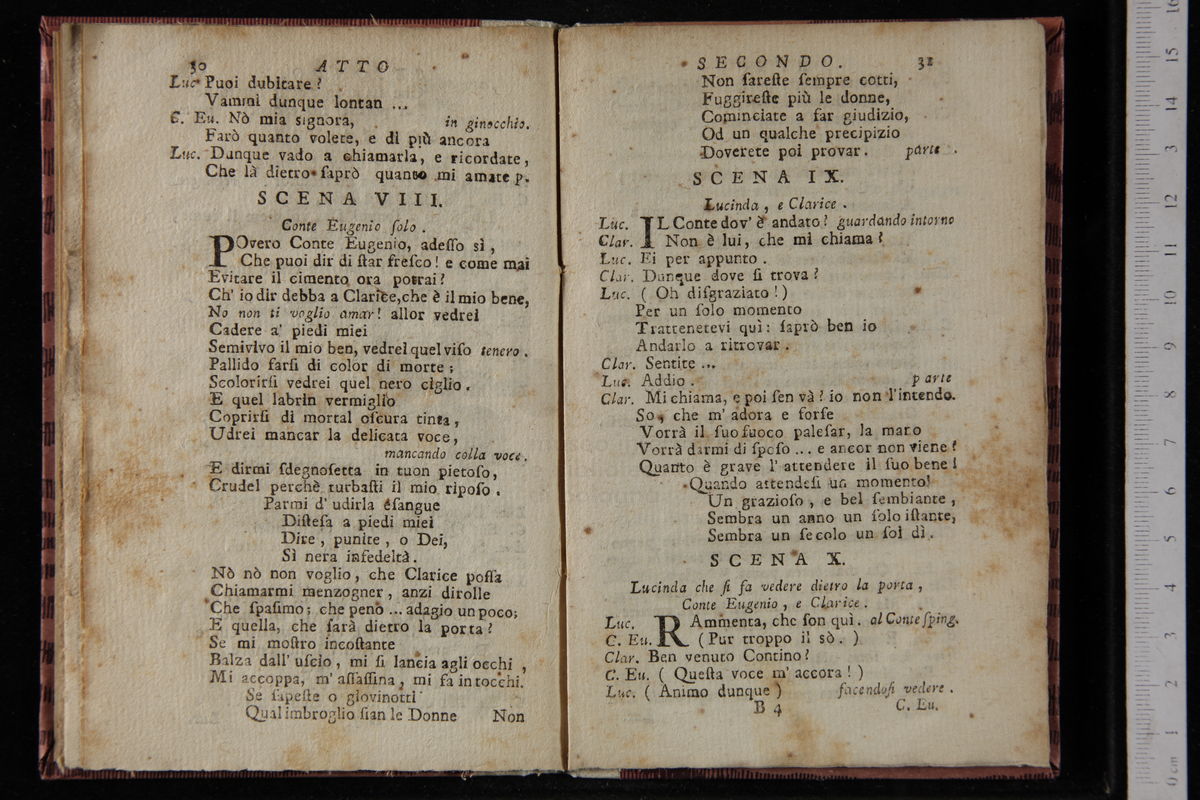 30 ATTO
Luc Puoi dubitare?
Vammi dunque lontan ...
C. Eu. Nò mia signora, in ginocchio.
Farò quanto volete, e di più ancora
Luc. Dunque vado a chiamarla, e ricordate,
Che là dietro saprò quanto mi amate p.
SCENA VIII.
Conte Eugenio ſolo.
POvero Conte Eugenio, adeſſo sì,
Che puoi dir di ſtar freſco! e come mai
Evitare il cimento ora potrai?
Ch' io dir debba a Clarice, che è il mio bene,
No non ti voglio amar! allor vedrei
Cadere a' piedi miei
Semivivo il mio ben, vedrei quel viſo tenero.
Pallido farſi di color di morte;
Scolorirſi vedrei quel nero ciglio.
E quel labrin vermiglio
Coprirſi di mortal oſcura tinta,
Udrei mancar la delicata voce,
mancando colla voce.
E dirmi ſdegnoſetta in tuon pietoſo,
Crudel perchè turbaſti il mio ripoſo.
Parmi d' udirla eſangue
Diſteſa a piedi miei
Dire, punite, o Dei,
Sì nera infedeltà.
Nò nò non voglio, che Clarice poſſa
Chiamarmi menzogner, anzi dirolle
Che ſpaſimo; che peno ... adagio un poco;
E quella, che ſarà dietro la porta?
Se mi moſtro incoſtante
Balza dall' uſcio, mi ſi lancia agli occhi,
Mi accoppa, m' aſſaſſina, mi fa in tocchi.
Se ſapeſte o giovinotti
Qual imbroglio ſian le Donne Non
SECONDO. 31
Non ſareſte ſempre cotti,
Fuggireſte più le donne,
Cominciate a far giudizio,
Od un qualche precipizio
Doverete poi provar. parte.
SCENA IX.
Lucinda, e Clarice.
Luc. IL Conte dov' è andato? guardando intorno
Clar. Non è lui, che mi chiama?
Luc. Ei per appunto.
Clar. Dunque dove ſi trova?
Luc. (Oh diſgraziato!)
Per un ſolo momento
Trattenetevi quì: ſaprò ben io
Andarlo a ritrovar.
Clar. Sentite ...
Luc. Addio. parte
Clar. Mi chiama, e poi ſen và? io non l'intendo.
So, che m' adora e forſe
Vorrà il ſuo fuoco paleſar, la mano
Vorrà darmi di ſpoſo ... e ancor non viene?
Quanto è grave l' attendere il ſuo bene!
Quando attendeſi un momento!
Un grazioſo, e bel ſembiante,
Sembra un anno un ſolo iſtante,
Sembra un ſecolo un ſol dì.
SCENA X.
Lucinda che ſi fa vedere dietro la porta,
Conte Eugenio, e Clarice.
Luc. RAmmenta, che ſon quì. al Conte ſping.
C. Eu. (Pur troppo il sò.)
Clar. Ben venuto Contino?
C. Eu. (Queſta voce m' accora!)
Luc. (Animo dunque) facendoſi vedere.
B 4 C. Eu.